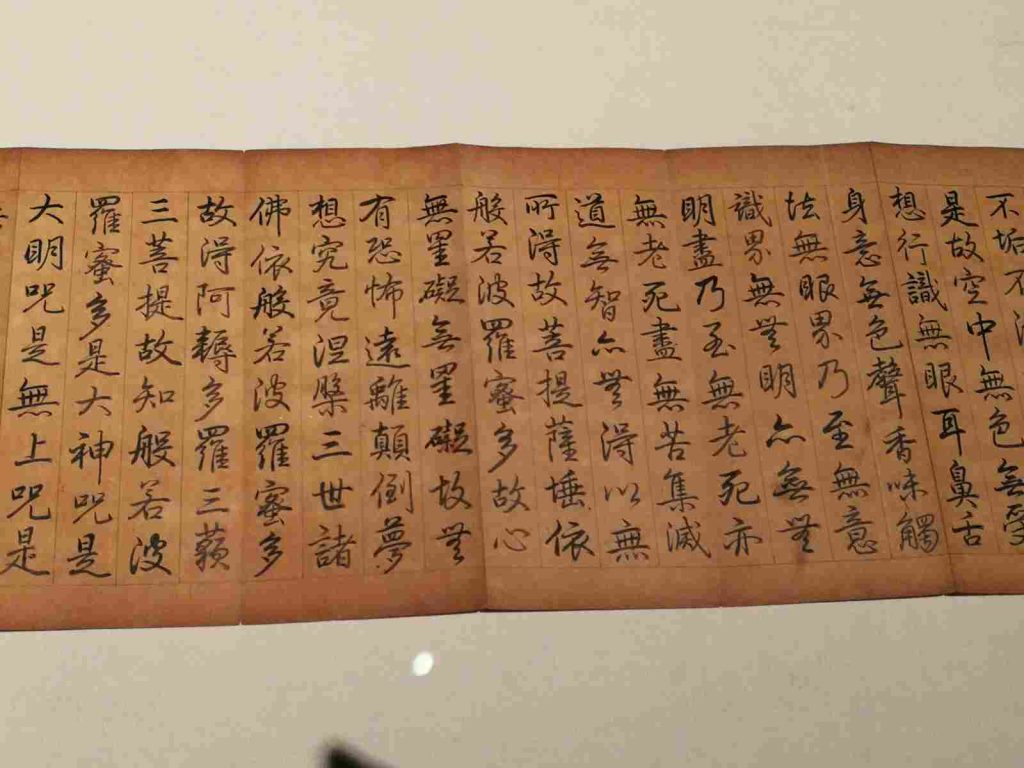 不垢不
是故空中無色無受
想行識無眼耳鼻舌
身意無色聲香味觸
法無眼界乃至無意
識界無無明亦無無
明盡乃至無老死亦
無老死盡無苦集滅
道無智亦無得以無
所得故菩提薩埵依
般若波羅蜜多故心
無罣礙無罣礙故無
有恐怖遠離顛倒夢
想究竟涅槃三世諸
佛依般若波羅蜜多
故得阿耨多羅三藐
三菩提故知般若波
羅蜜多是大神呪是
大明呪是無上呪是